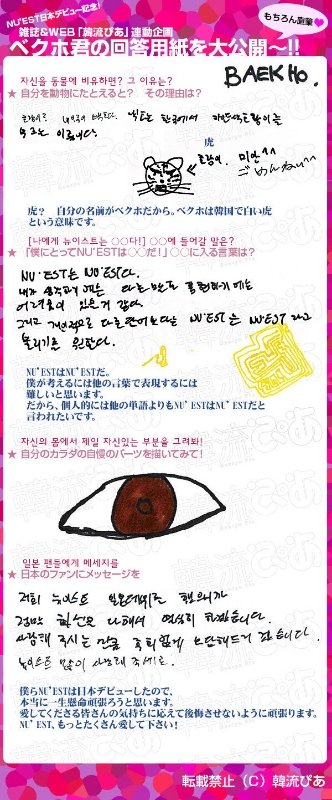 NU'EST日本デビュー記念!
雑誌&WEB「韓流ぴあ」連動企画
もちろん直筆♥
ベクホ君の回答用紙を大公開〜!!
BAEKHO.
자신을 동물에 비유하면? 그 이유는?
★ 自分を動物にたとえると? その理由は?
虎
호랑이. 미안^^
ごめんねぃ^^
虎? 自分の名前がベクホだから。ベクホは韓国で白い虎
という意味です。
[나에게 뉴이스트는 ○○다!] ○○에 들어갈 말은?
★「僕にとってNU'ESTは○○だ!」○○に入る言葉は?
NU'EST는 NU'EST다.
내가 생각하기에는 다른 말로 표현하기에는
어려움이 있는 거 같다.
그리고 개인적으로 다른 단어보다는 NU'EST는 NU'EST 라고
불리기를 원한다.
NU'ESTはNU'ESTだ。
僕が考えるには他の言葉で表現するには
難しいと思います。
だから、個人的には他の単語よりもNU'ESTはNU'ESTだと
言われたいです。
자신의 몸에서 제일 자신있는 부분을 그려봐!
★ 自分のカラダの自慢のパーツを描いてみて!
일본 팬들에게 메세지를
★ 日本のファンにメッセージを
저희 뉴이스트 일본데뷔를 했으니까
정말 힘으로 다해서 열심히 하겠습니다.
사랑해 주시는 만큼 후회없게 노력해드리겠습니다.
뉴이스트 많이 사랑해 주세요.
僕らNU'ESTは日本デビューしたので、
本当に一生懸命頑張ろうと思います。
愛してくださる皆さんの気持ちに応えて後悔させないように頑張ります。
NU'EST、もっとたくさん愛して下さい!
転載禁止(C)韓流ぴあ